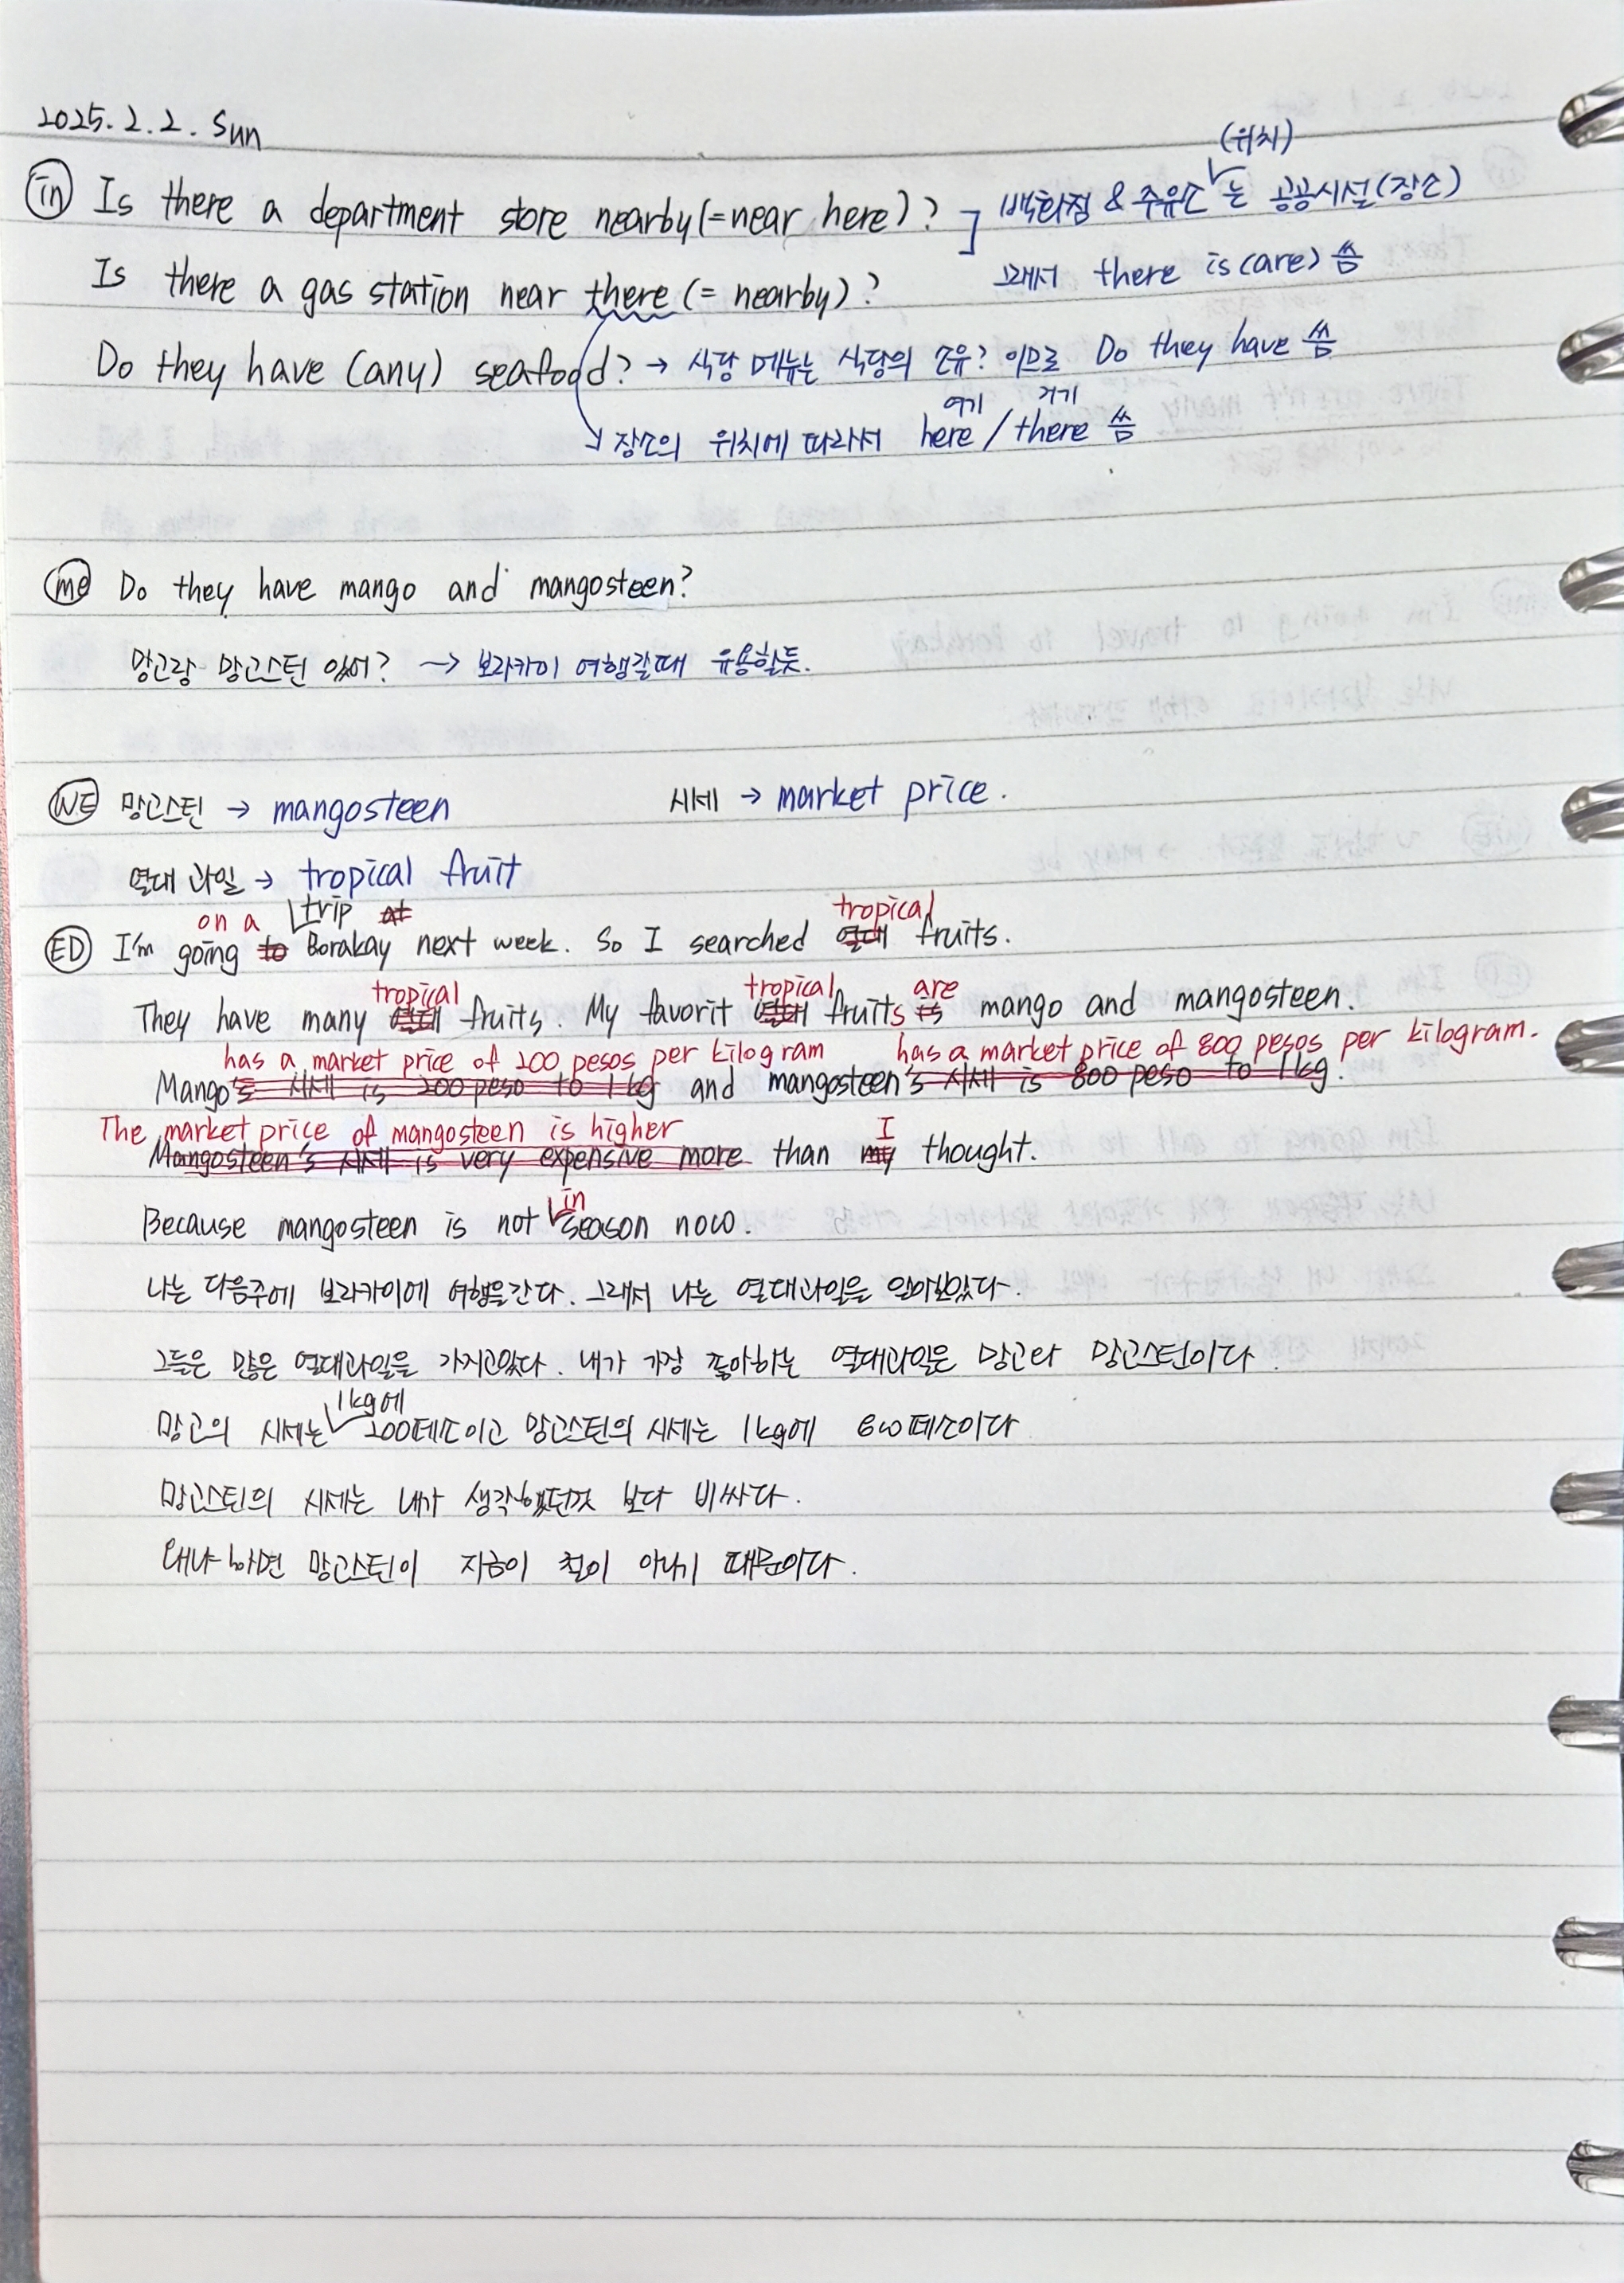 2025. 2. 2. Sun
(위치)
in Is there a department store nearby(=near here)? 백화점 & 주유소는 공공시설(장소)
Is there a gas station near there (= nearby)? 그래서 there is(are) 씀
Do they have (any) seafood? → 식당 메뉴는 식당의 소유? 이므로 Do they have 씀
여기 거기
장소의 위치에 따라서 here / there 씀
me Do they have mango and mangosteen?
망고랑 망고스틴 있어? → 보라카이 여행갈때 유용할듯.
WE 망고스틴 → mangosteen 시세 → market price.
열대 과일 → tropical fruit
on a trip at tropical
ED I'm going to Borakay next week. So I searched 열대 fruits.
tropical tropical are
They have many 열대 fruits. My favorit 열대 fruits is mango and mangosteen.
has a market price of 200 pesos per kilogram has a market price of 800 pesos per kilogram.
Mango's 시세 is 200 peso to 1kg and mangosteen's 시세 is 800 peso to 1kg.
The market price of mangosteen is higher I
Mangosteen's 시세 is very expensive more than my thought.
in
Because mangosteen is not season now.
나는 다음주에 보라카이에 여행을간다. 그래서 나는 열대과일을
그들은 많은 열대과일을 가지고있다. 내가 가장 좋아하는 열대과일은 망고랑 망고스틴이다.
1kg에
망고의 시세는 200페소이고 망고스틴의 시세는 1kg에 페소이다
망고스틴의 시세는 내가 생각했던것 보다 비싸다.
왜냐하면 망고스틴이 지금이 철이 아니기 때문이다.